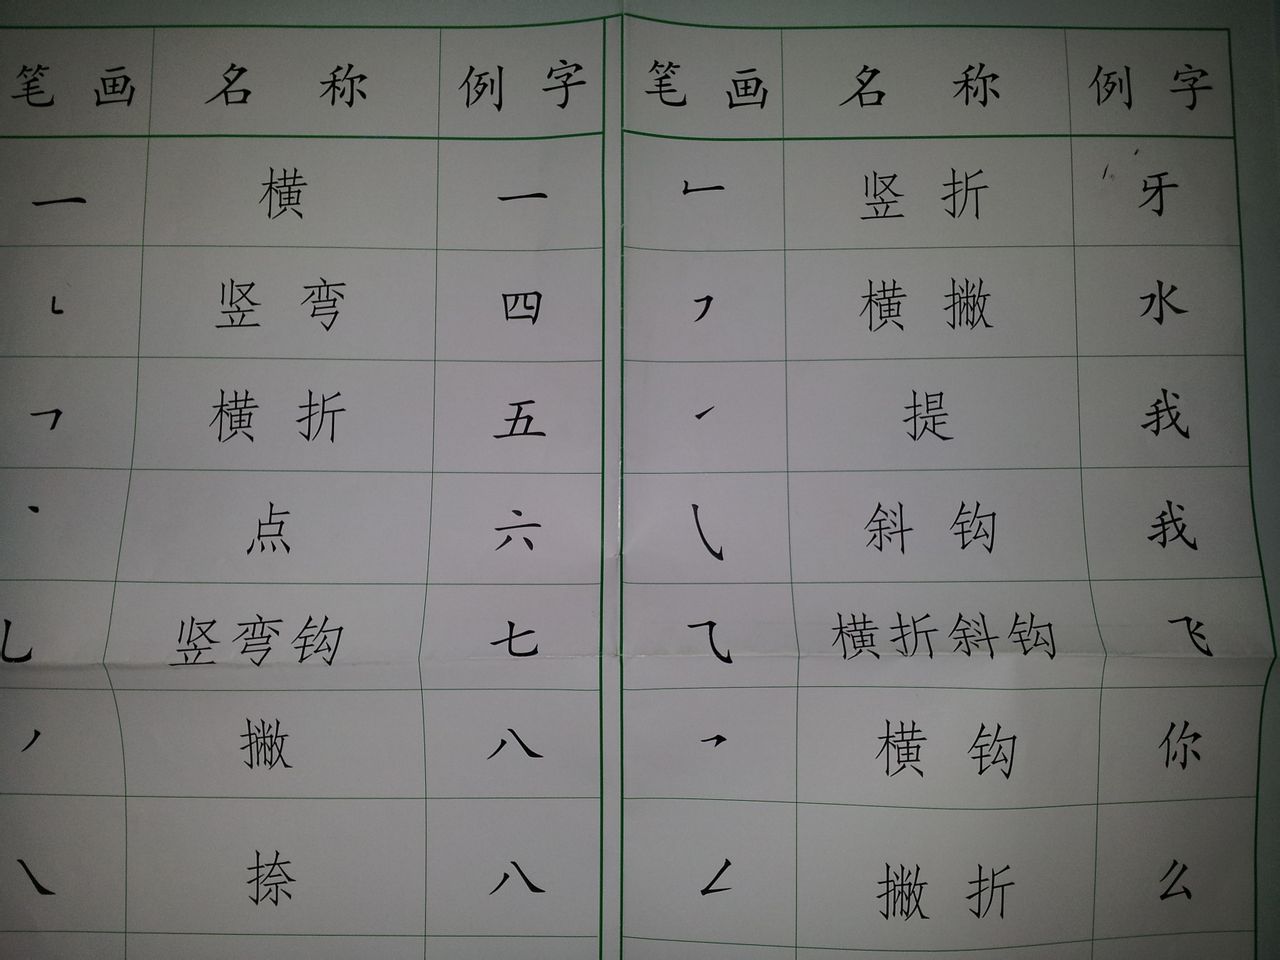 笔画 名称 例字 笔画 名称 例字
㇐ 横 一 ㇗ 竖折 牙
㇄ 竖弯 四 ㇇ 横撇 水
㇕ 横折 五 ㇀ 提 我
㇔ 点 六 ㇂ 斜钩 我
㇟ 竖弯钩 七 ⺄ 横折斜钩 飞
㇒ 撇 八 ㇖ 横钩 你
㇏ 捺 八 ㇜ 撇折 么